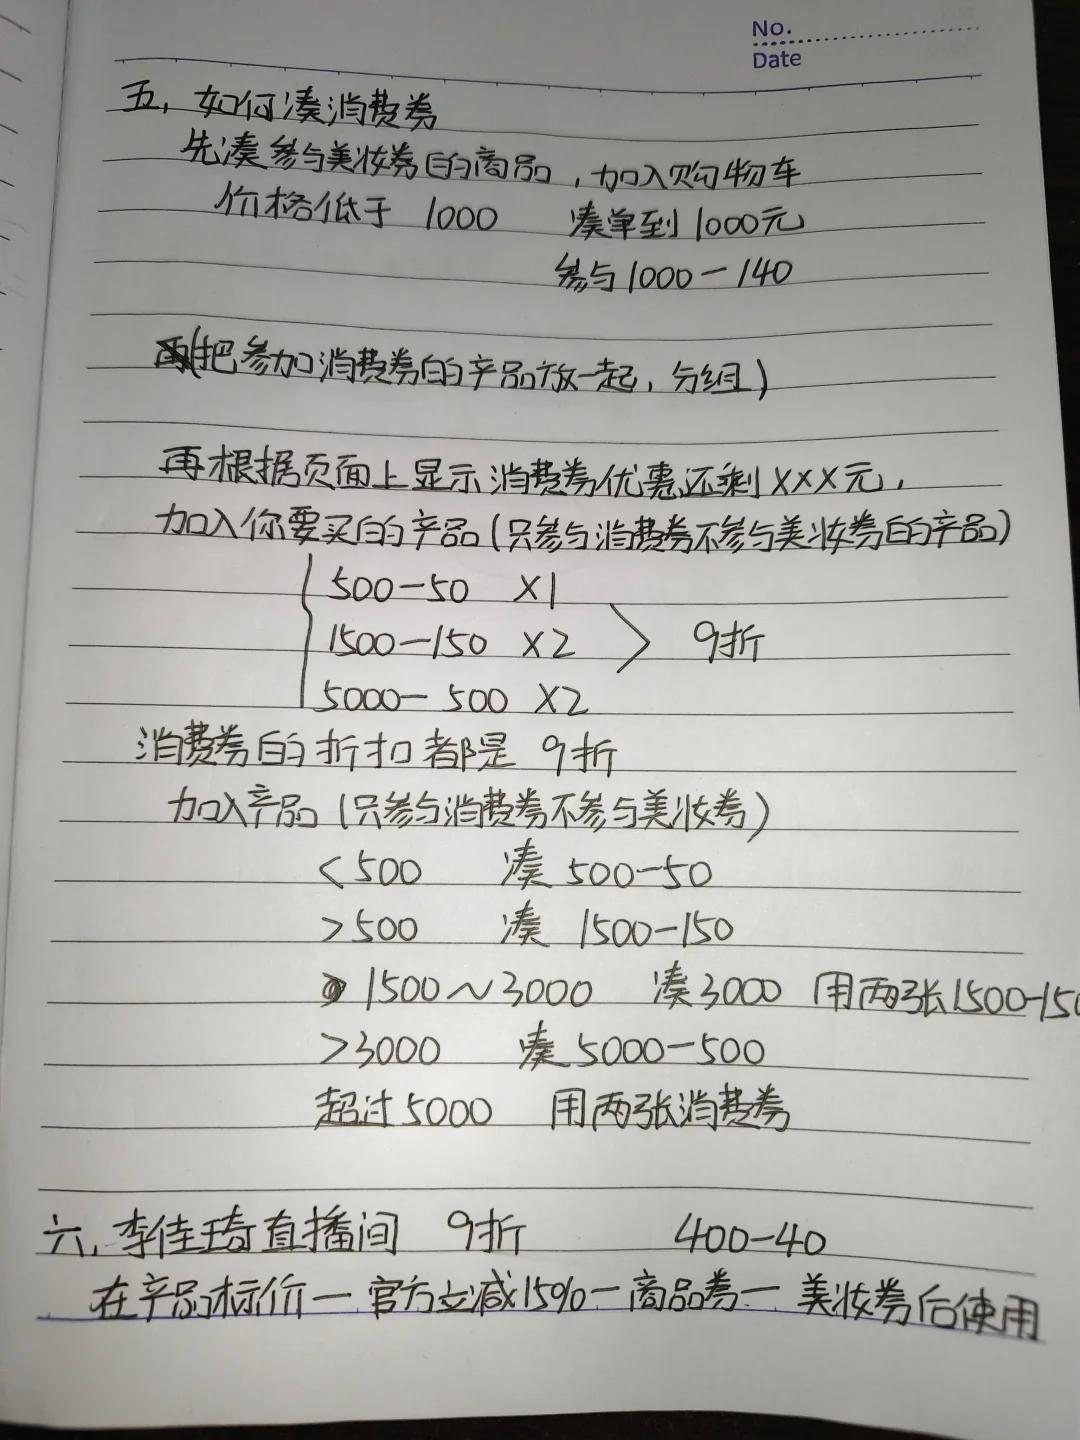 No.
Date
五,如何凑消费券
先凑参与美妆券的商品,加入购物车
价格低于 1000 凑单到1000元
参与1000-140
(把参加消费券的产品放一起,分组)
再根据页面上显示消费券优惠还剩XXX元,
加入你要买的产品(只参与消费券不参与美妆券的产品)
500-50 X1
1500-150 X2 9折
5000-500 X2
消费券的折扣都是 9折
加入产品(只参与消费券不参与美妆券)
<500 凑 500-50
>500 凑 1500-150
1500~3000 凑3000 用两张1500-150
>3000 凑 5000-500
超过5000 用两张消费券
六,李佳琦直播间 9折 400-40
在产品标价-官方立减15%-商品券-美妆券后使用